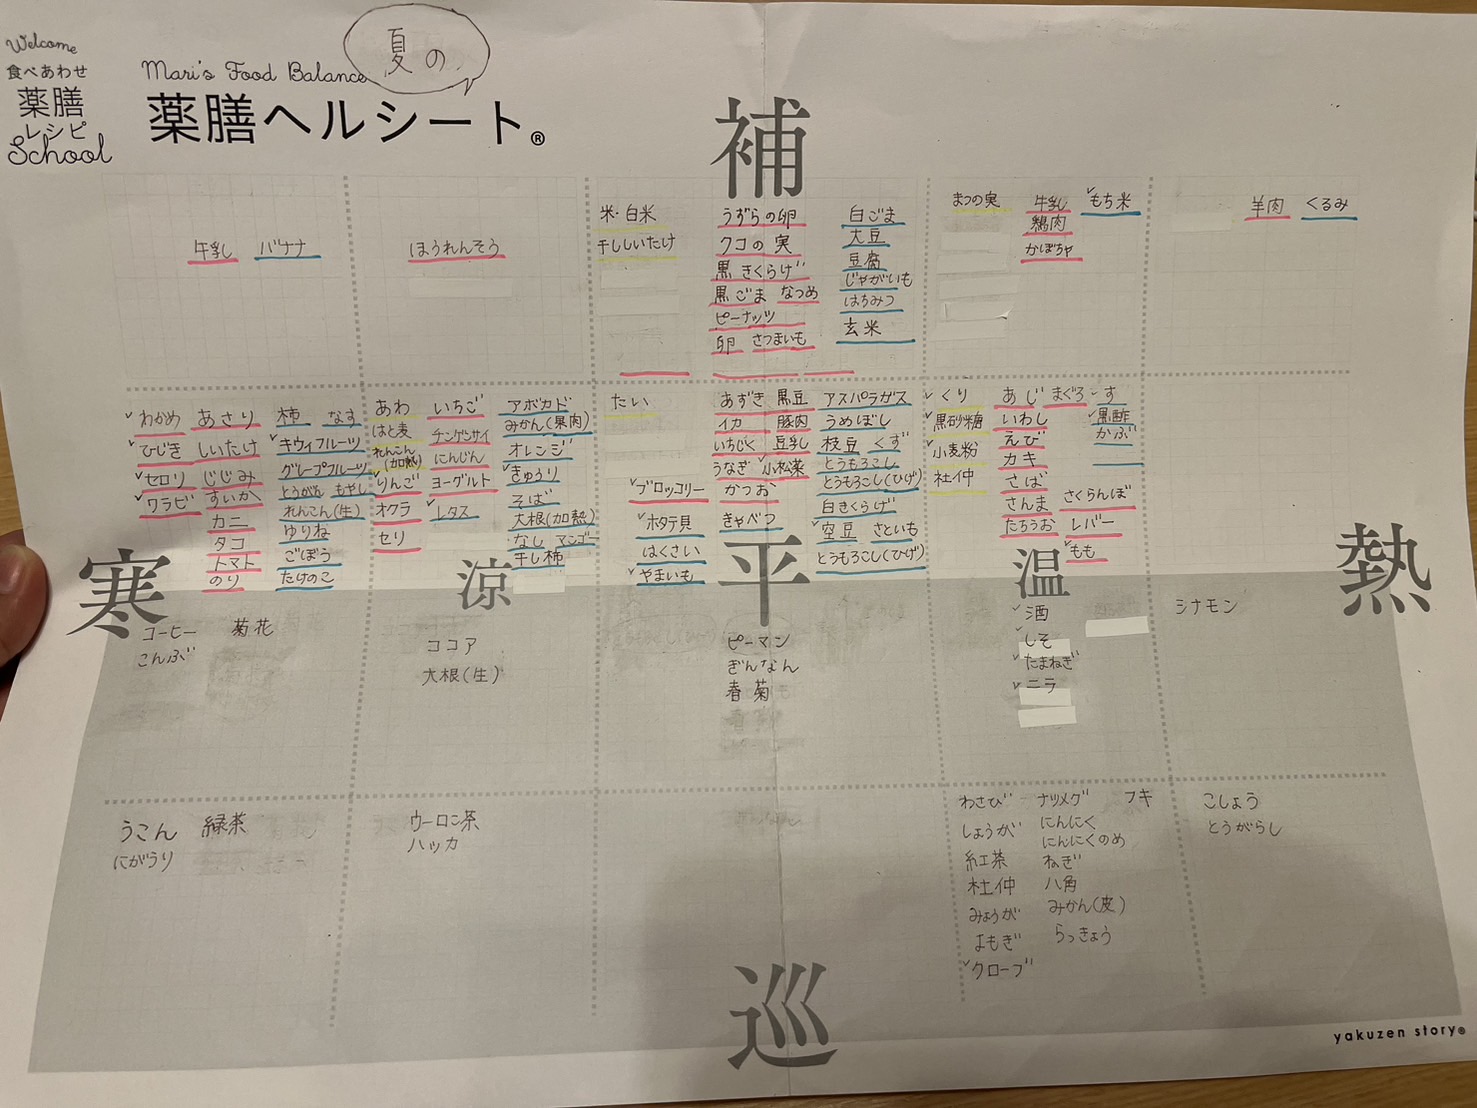 Welcome
食べあわせ
薬膳
レシピ
School
Mari's Food Balance
夏の
薬膳ヘルシート®
補
牛乳 バナナ
ほうれんそう
米・白米
干ししいたけ
うずらの卵
クコの実
黒きくらげ
黒ごま なつめ
ピーナッツ
卵 さつまいも
白ごま
大豆
豆腐
じゃがいも
はちみつ
玄米
まつの実
牛乳
鶏肉
かぼちゃ
✓もち米
羊肉 くるみ
✓わかめ
✓ひじき
✓セロリ
✓ワラビ
あさり
しいたけ
じじみ
すいか
カニ
タコ
トマト
のり
柿 なす
✓キウィフルーツ
グレープフルーツ
とうがん もやし
れんこん(生)
ゆりね
ごぼう
たけのこ
あわ
はと麦
れんこん(加熱)
✓りんご
オクラ
セリ
いちご
チンゲンサイ
にんじん
ヨーグルト
✓レタス
アボカド
みかん(果肉)
オレンジ
✓きゅうり
そば
大根(加熱)
なし マンゴー
干し柿
たい
✓ブロッコリー
✓ホタテ貝
はくさい
✓やまいも
あずき 黒豆
イカ 豚肉
いちじく 豆乳
うなぎ ✓小松菜
かつお
きゃべつ
アスパラガス
うめぼし
枝豆 くず
とうもろこし
とうもろこし(ひげ)
白きくらげ
✓空豆 さといも
とうもろこし(ひげ)
✓くり
✓黒砂糖
✓小麦粉
杜仲
あじ まぐろ
いわし
えび
カキ
さば
さんま
たちうお
さくらんぼ
レバー
✓もも
す
✓黒酢
かぶ
寒
涼
平
温
熱
コーヒー 菊花
こんぶ
ココア
大根(生)
ピーマン
ぎんなん
春菊
✓酒
✓しそ
✓たまねぎ
✓ニラ
シナモン
うこん 緑茶
にがうり
ウーロン茶
ハッカ
わさび
しょうが
紅茶
杜仲
みょうが
よもぎ
✓クローブ
ナツメグ フキ
にんにく
にんにくのめ
ねぎ
八角
みかん(皮)
らっきょう
こしょう
とうがらし
巡
yakuzen story®